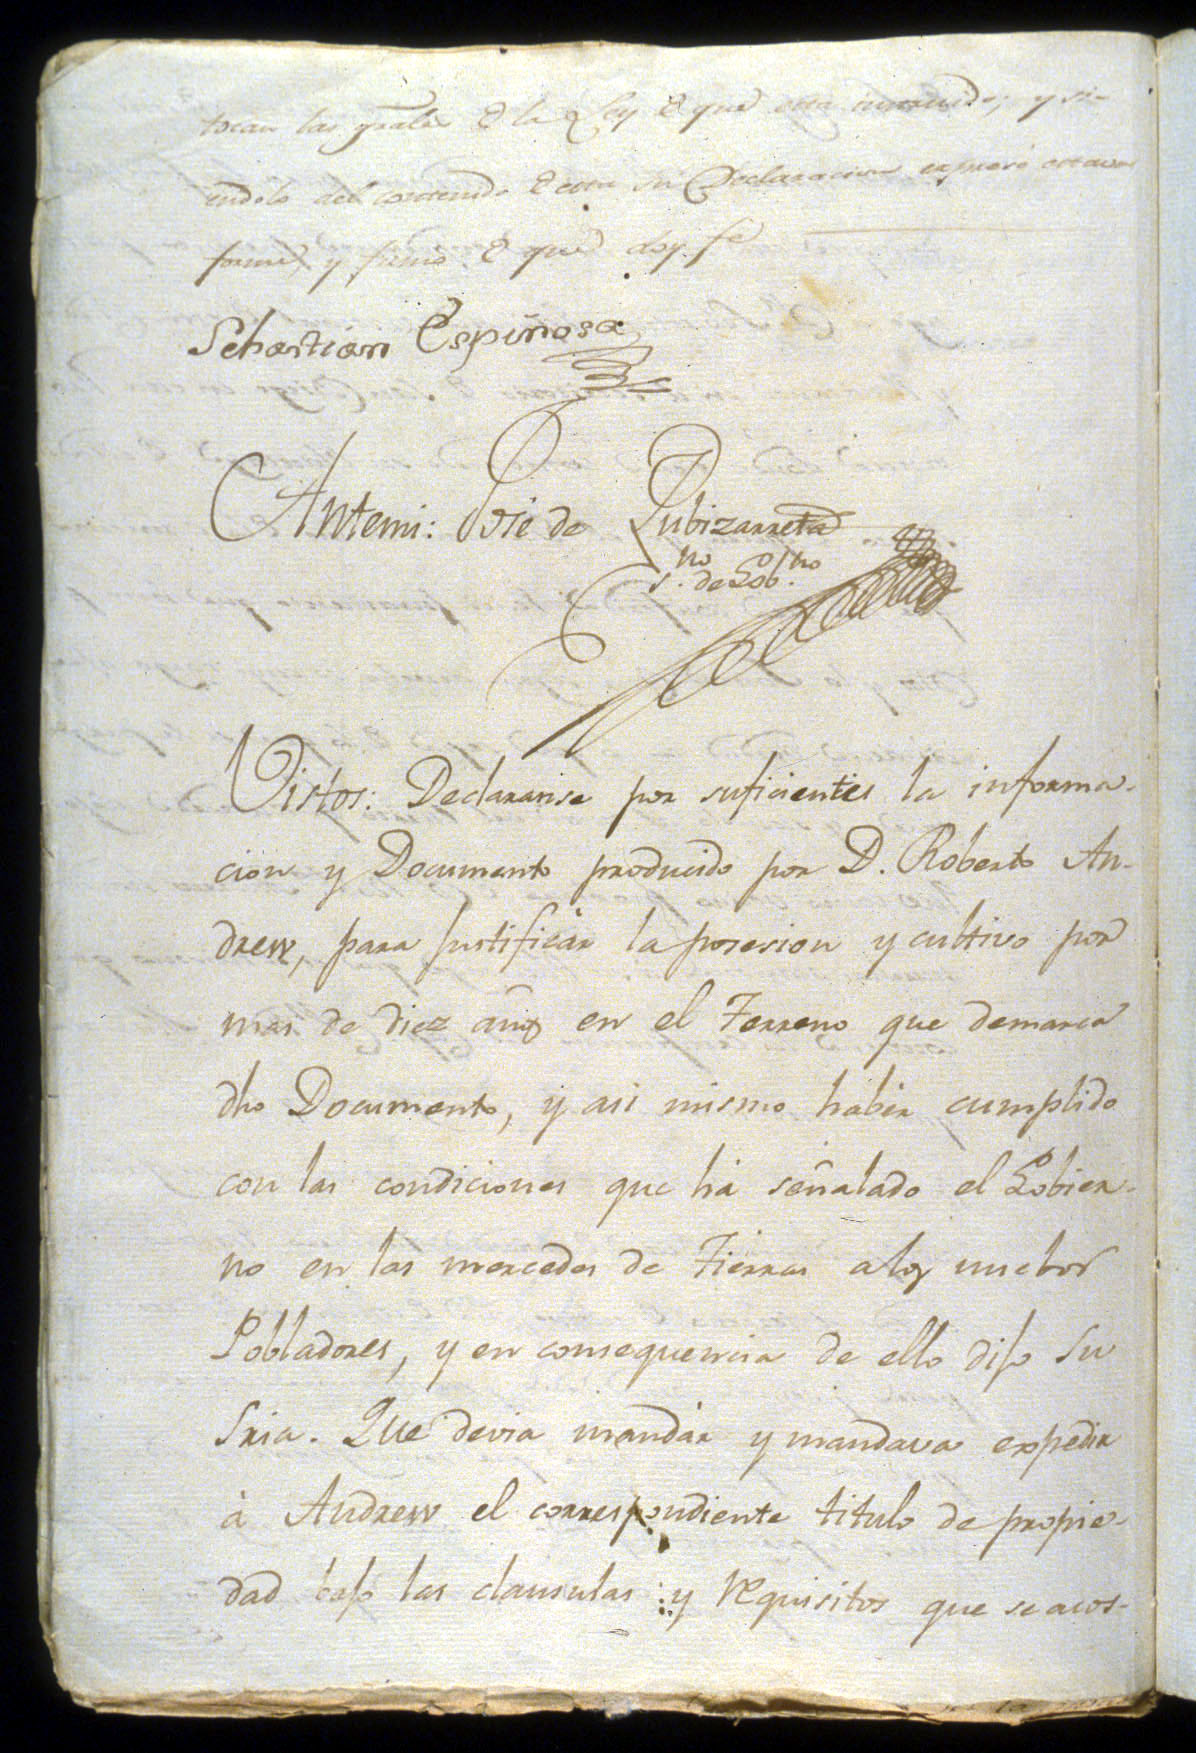 tocan las grales. de la Ley de que esta instruido; y si-
endole del contenido de esta su Declaracion expresó estar con
forme y firmó de que doy fe
Sebastian Espinosa
Antemi: José de Zubizarreta
s.no de Gob.no
Vistos: Declaranse por suficientes la informa-
cion y Documento producido por D. Roberto An-
drew, para Justificàr la posesion y cultivo por
mas de diez años en el Terreno que demarca
dho Documento, y asi mismo habèr cumplido
con las condiciones que hà señalado el Gobier-
no en las mercedes de Tierras a los nuebos
Pobladores, y en consequencia de ello dijo Su
Sria. Que devia mandàr y mandava expedir
à Andrew el correspondiente titulo de propie-
dad bajo las clausulas y requisitos que se acos-